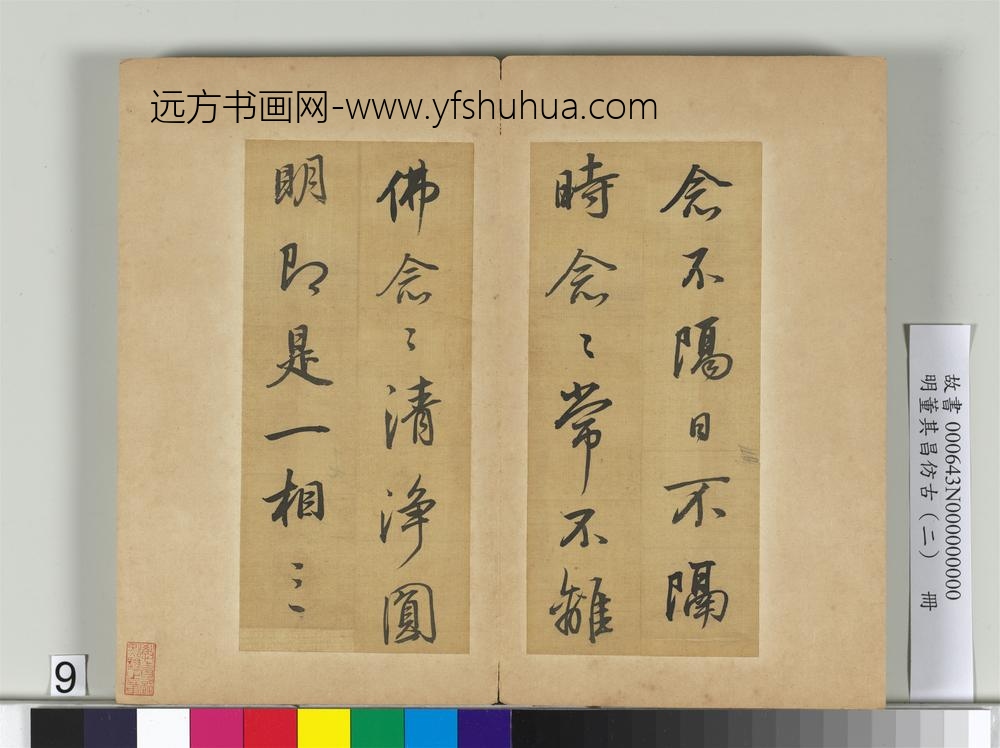 远方书画网-www.yfshuhua.com
念不隔日不隔
時念〻常不離
佛念〻清淨圓
明即是一相三
故書 000643N000000000
明董其昌仿古（二） 冊
9